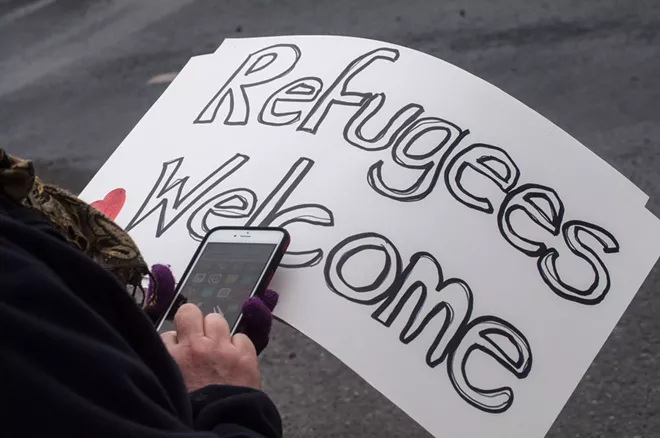 Refugees
Welcome